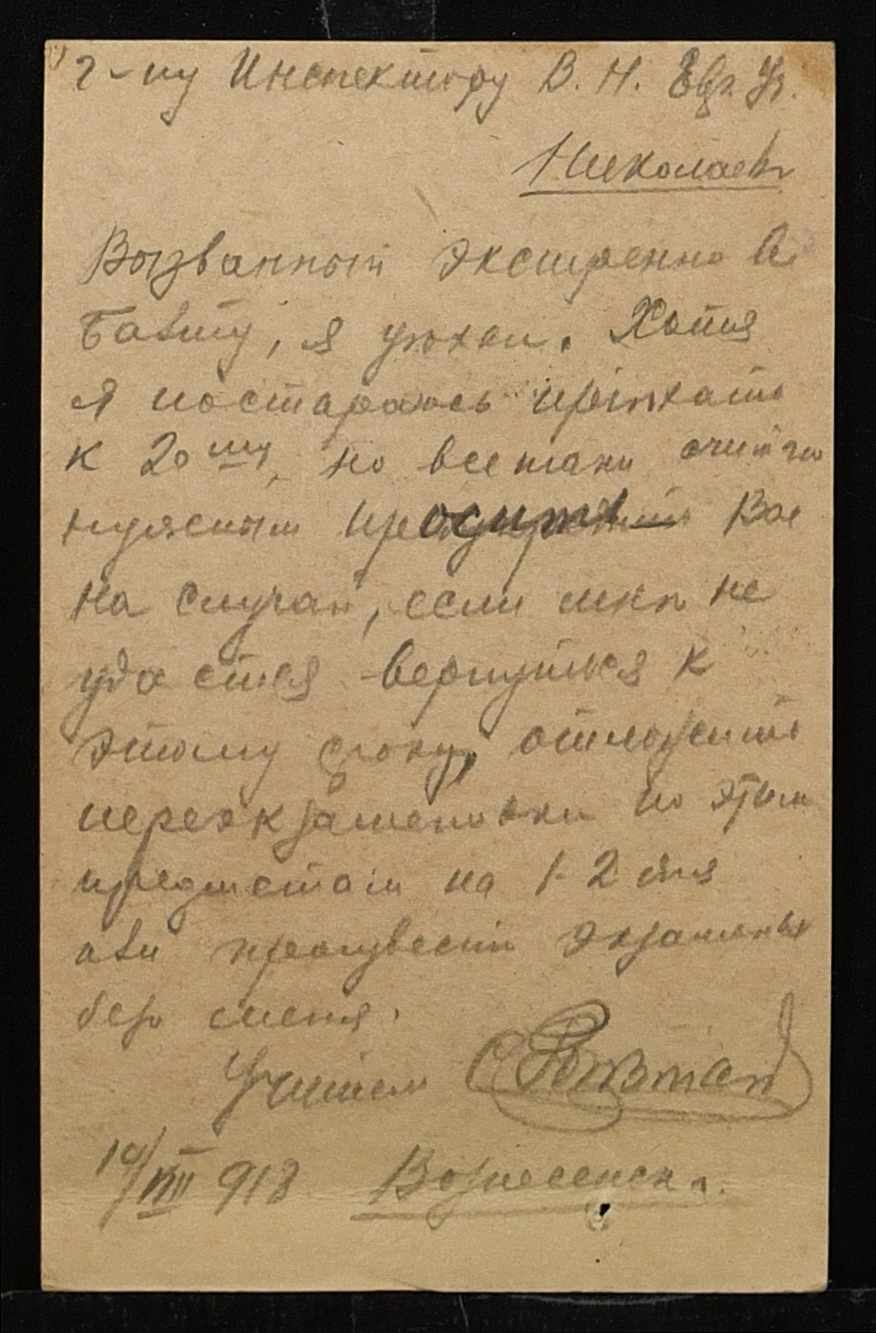 г-ну Инспектору В. Н. Евр. Уч.
Николаевъ
Вызванный экстренно в
Балту, я уѣхал. Хотя
я постараюсь пріѣхать
к 20му, но все таки считаю
нужным просить Вас
на случай, если мнѣ не
удастся вернуться к
этому сроку, отложить
переэкзаменовки по этим
предметам на 1-2 дня
или произвести экзамены
безъ меня.
Учитель С.
VIII 918 Вознесенскъ.